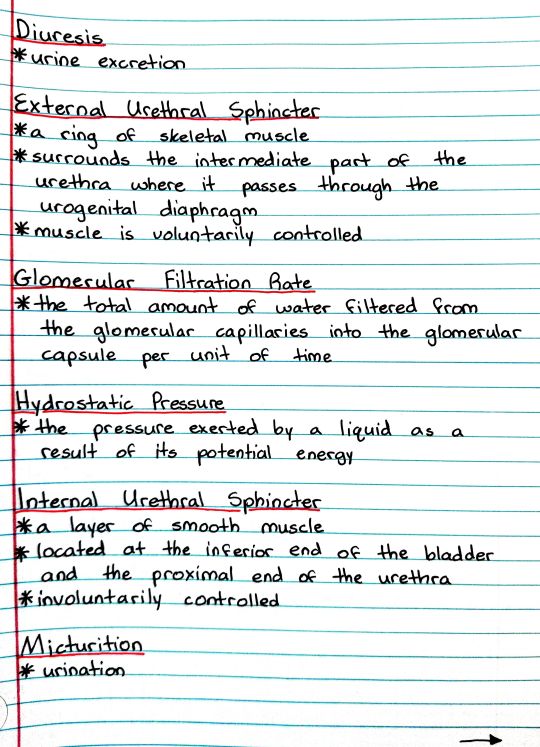 Diuresis
* urine excretion
External Urethral Sphincter
* a ring of skeletal muscle
* surrounds the intermediate part of the
urethra where it passes through the
urogenital diaphragm
* muscle is voluntarily controlled
Glomerular Filtration Rate
* the total amount of water filtered from
the glomerular capillaries into the glomerular
capsule per unit of time
Hydrostatic Pressure
* the pressure exerted by a liquid as a
result of its potential energy
Internal Urethral Sphincter
* a layer of smooth muscle
* located at the inferior end of the bladder
and the proximal end of the urethra
* involuntarily controlled
Micturition
* urination